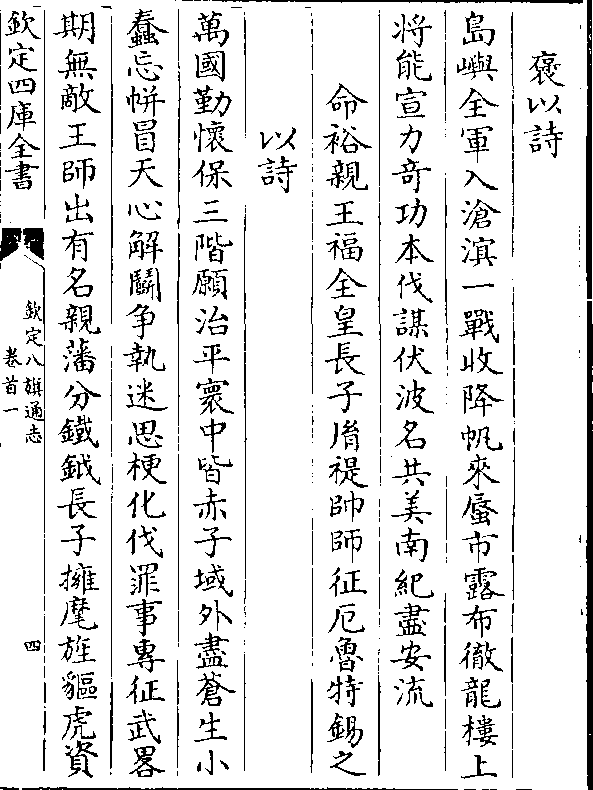 褒以詩
島嶼全軍入滄溟一戰收降帆來蜃市露布徹龍樓上
將能宣力竒功本伐謀伏波名共美南紀盡安流
命裕親王福全皇長子𦙍禔帥師征厄魯特錫之
以詩
萬國勤懷保三階願治平寰中皆赤子域外盡蒼生小
蠢忘帡冒天心解鬭争執迷思梗化伐罪事專征武畧
期無敵王師出有名親藩分鐵鉞長子擁麾旌貙虎資
欽定四庫全書
欽定八旗通志
卷首一
四